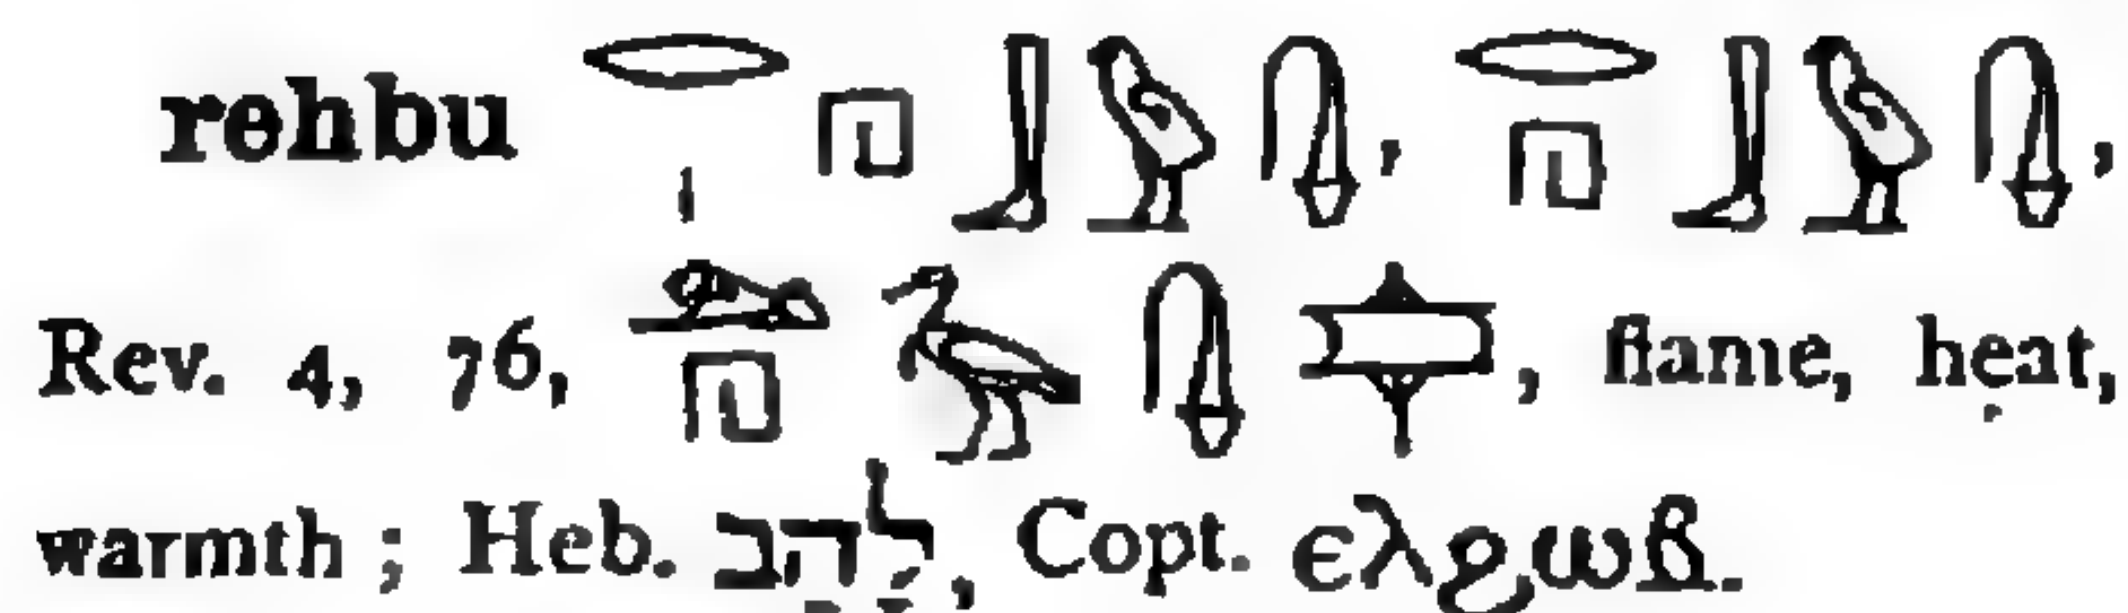 rehbu 𓂋𓏤𓉔𓃀𓅱𓊮, 𓂋𓉔𓃀𓅱𓊮,
Rev. 4, 76, 𓃭𓉔𓅡𓊮, flame, heat,
warmth ; Heb. לַהַב, Copt. ⲉⲗϩⲱⲃ.